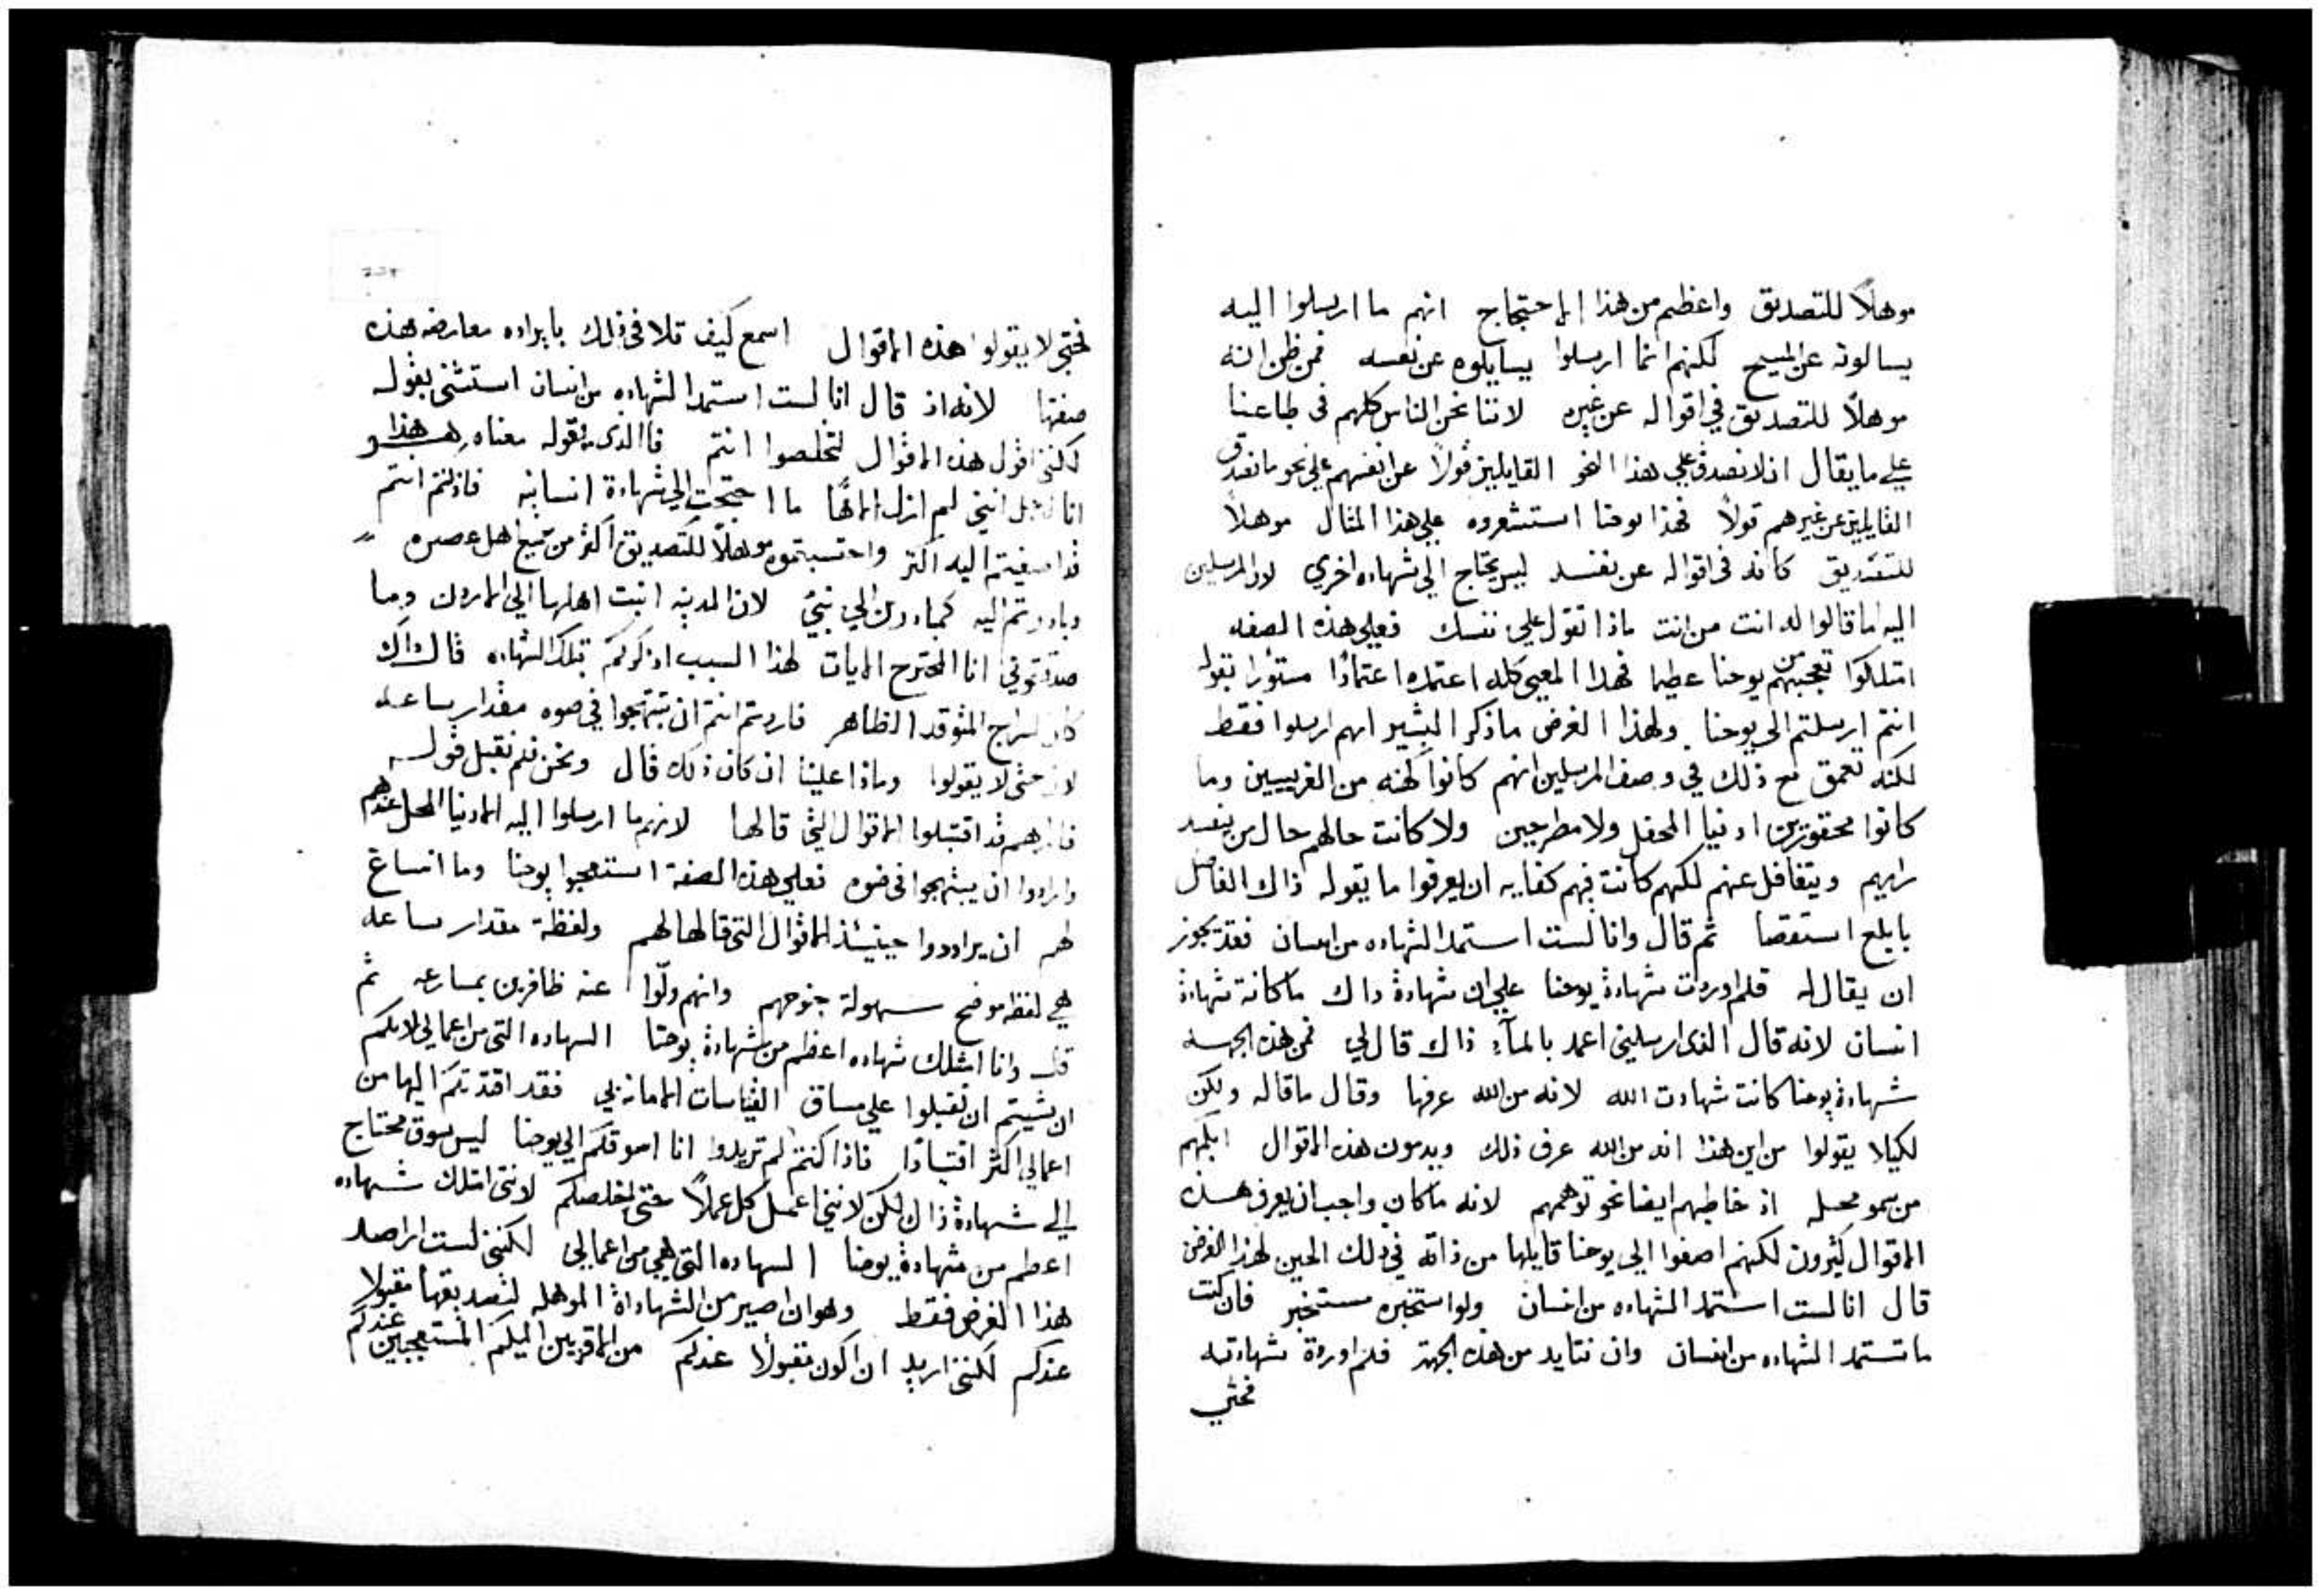 موهلاً للتصديق واعظم من هذا الاحتجاج انهم ما ارسلوا اليه
يسالونه عن المسيح لكنهم انما ارسلوا يسايلوه عن نفسه فمن ظن انه
موهلاً للتصديق في اقواله عن غيره لاننا نحن الناس كلهم في طباعنا
على ما يقال ان لا نصدق على هذا النحو القايلين قولاً عن انفسهم على نحو ما نصدق
القايلين عن غيرهم قولاً فهذا يوحنا استشعروه على هذا المثال موهلاً
للتصديق كانه في اقواله عن نفسه ليس يحتاج الى شهاده اخري لان المرسلين
اليه ما قالوا له انت من انت ماذا تقول علي نفسك فعلي هذه الصفه
امتلكوا تعجبهم من يوحنا عظيما فهذا المعني كله اعتمده اعتمادًا مستورًا بقوله
انتم ارسلتم الى يوحنا ولهذا الغرض ما ذكر البشير انهم ارسلوا فقط
لكنه تعمق مع ذلك في وصف المرسلين انهم كانوا كهنه من الفريسيين وما
كانوا محقورين ادنيا المحفل ولا مطرحين ولا كانت حالهم حال من يفسد
رايهم ويتغافل عنهم لكنهم كانت فيهم كفايه ان يعرفوا ما يقوله ذاك الفاضل
بابلغ استقصا ثم قال وانا لست استمد الشهاده من انسان فقد يجوز
ان يقال له فلم اوردت شهادة يوحنا علي ان شهادة داك ما كانة شهادة
انسان لانه قال الذى ارسلني اعمد بالمآء ذاك قال لي فمن هذه الجهه
شهادة يوحنا كانت شهادت الله لانه من الله عرفها وقال ما قاله ولكن
لكيلا يقولوا من اين هذا انه من الله عرف ذلك ويدمون هذه الاقوال ابكمهم
من سمو محله اذ خاطبهم ايضا نحو توهمهم لانه ما كان واجبا ان يعرف هذه
الاقوال كثيرون لكنهم اصغوا الي يوحنا قايلها من ذاته في ذلك الحين لهذا الغرض
قال انا لست استمد الشهاده من انسان ولو استخبره مستخبر فان كنت
ما تستمد الشهاده من انسان وان نتايد من هذه الجهة فلم اوردة شهادته
فحتي
فحتي لا يقولوا هذه الاقوال اسمع كيف تلافى ذلك بايراده معارضه هذه
صفتها لانه اذ قال انا لست استمد الشهاده من انسان استثنى بقوله
لكنني اقول هذه الاقوال لتخلصوا انتم فاالذى يقوله معناه هذا هو
انا لاجل انني لم ازل الاهًا ما احتجت الي شهادة انسانيه فاذ كنتم انتم
قد اصغيتم اليه اكثر واحتسبتموه موهلاً للتصديق اكثر من جميع اهل عصره
وبادرتم اليه كمبادرين الي نبيٍ لان المدينه انبت اهلها الي الاردن وما
صدقتموني انا المجترح الايات لهذا السبب اذكركم بتلك الشهاده قال ذاك
كان السراج المتوقد الظاهر فاردتم انتم ان تبتهجوا في ضوه مقدار ساعه
لان حتى لا يقولوا وماذا علينا ان كان ذلك قال ونحن فلم نقبل قوله
فاراهم قد اقتبلوا الاقوال التي قالها لانهم ما ارسلوا اليه الادنيا المحل عندهم
وارادوا ان يبتهجوا فى ضوه فعلي هذه الصفة استعجبوا يوحنا وما انساغ
لهم ان يراددوا حينيذ الاقوال التى قالها لهم ولفظة مقدار ساعه
هي لفظه موضح سهولة جنوحهم وانهم ولّوا عنه ظافرين بمسارعه ثم
قال وانا امتلك شهاده اعظم من شهادة يوحنا الشهاده التى من اعمالي لانكم
ان شيتم ان تقبلوا علي مساق القياسات الامانه بي فقد اقتدتكم اليها من
اعمالي اكثر اقتيادًا فاذا كنتم لم تريدوا انا اسوقكم الي يوحنا ليس سوق محتاج
الي شهادة ذاك لكن لانني اعمل كل عملاً حتى اخلصكم لانني امتلك شهاده
اعظم من شهادة يوحنا الشهاده التى هي من اعمالي لكنني لست اراصد
هذا الغرض فقط وهو ان اصير من الشهاداة الموهله لتصديقها مقبولا
عندكم لكنني اريد ان اكون مقبولاً عندكم من الاقربين اليكم المستعجبين عندكم